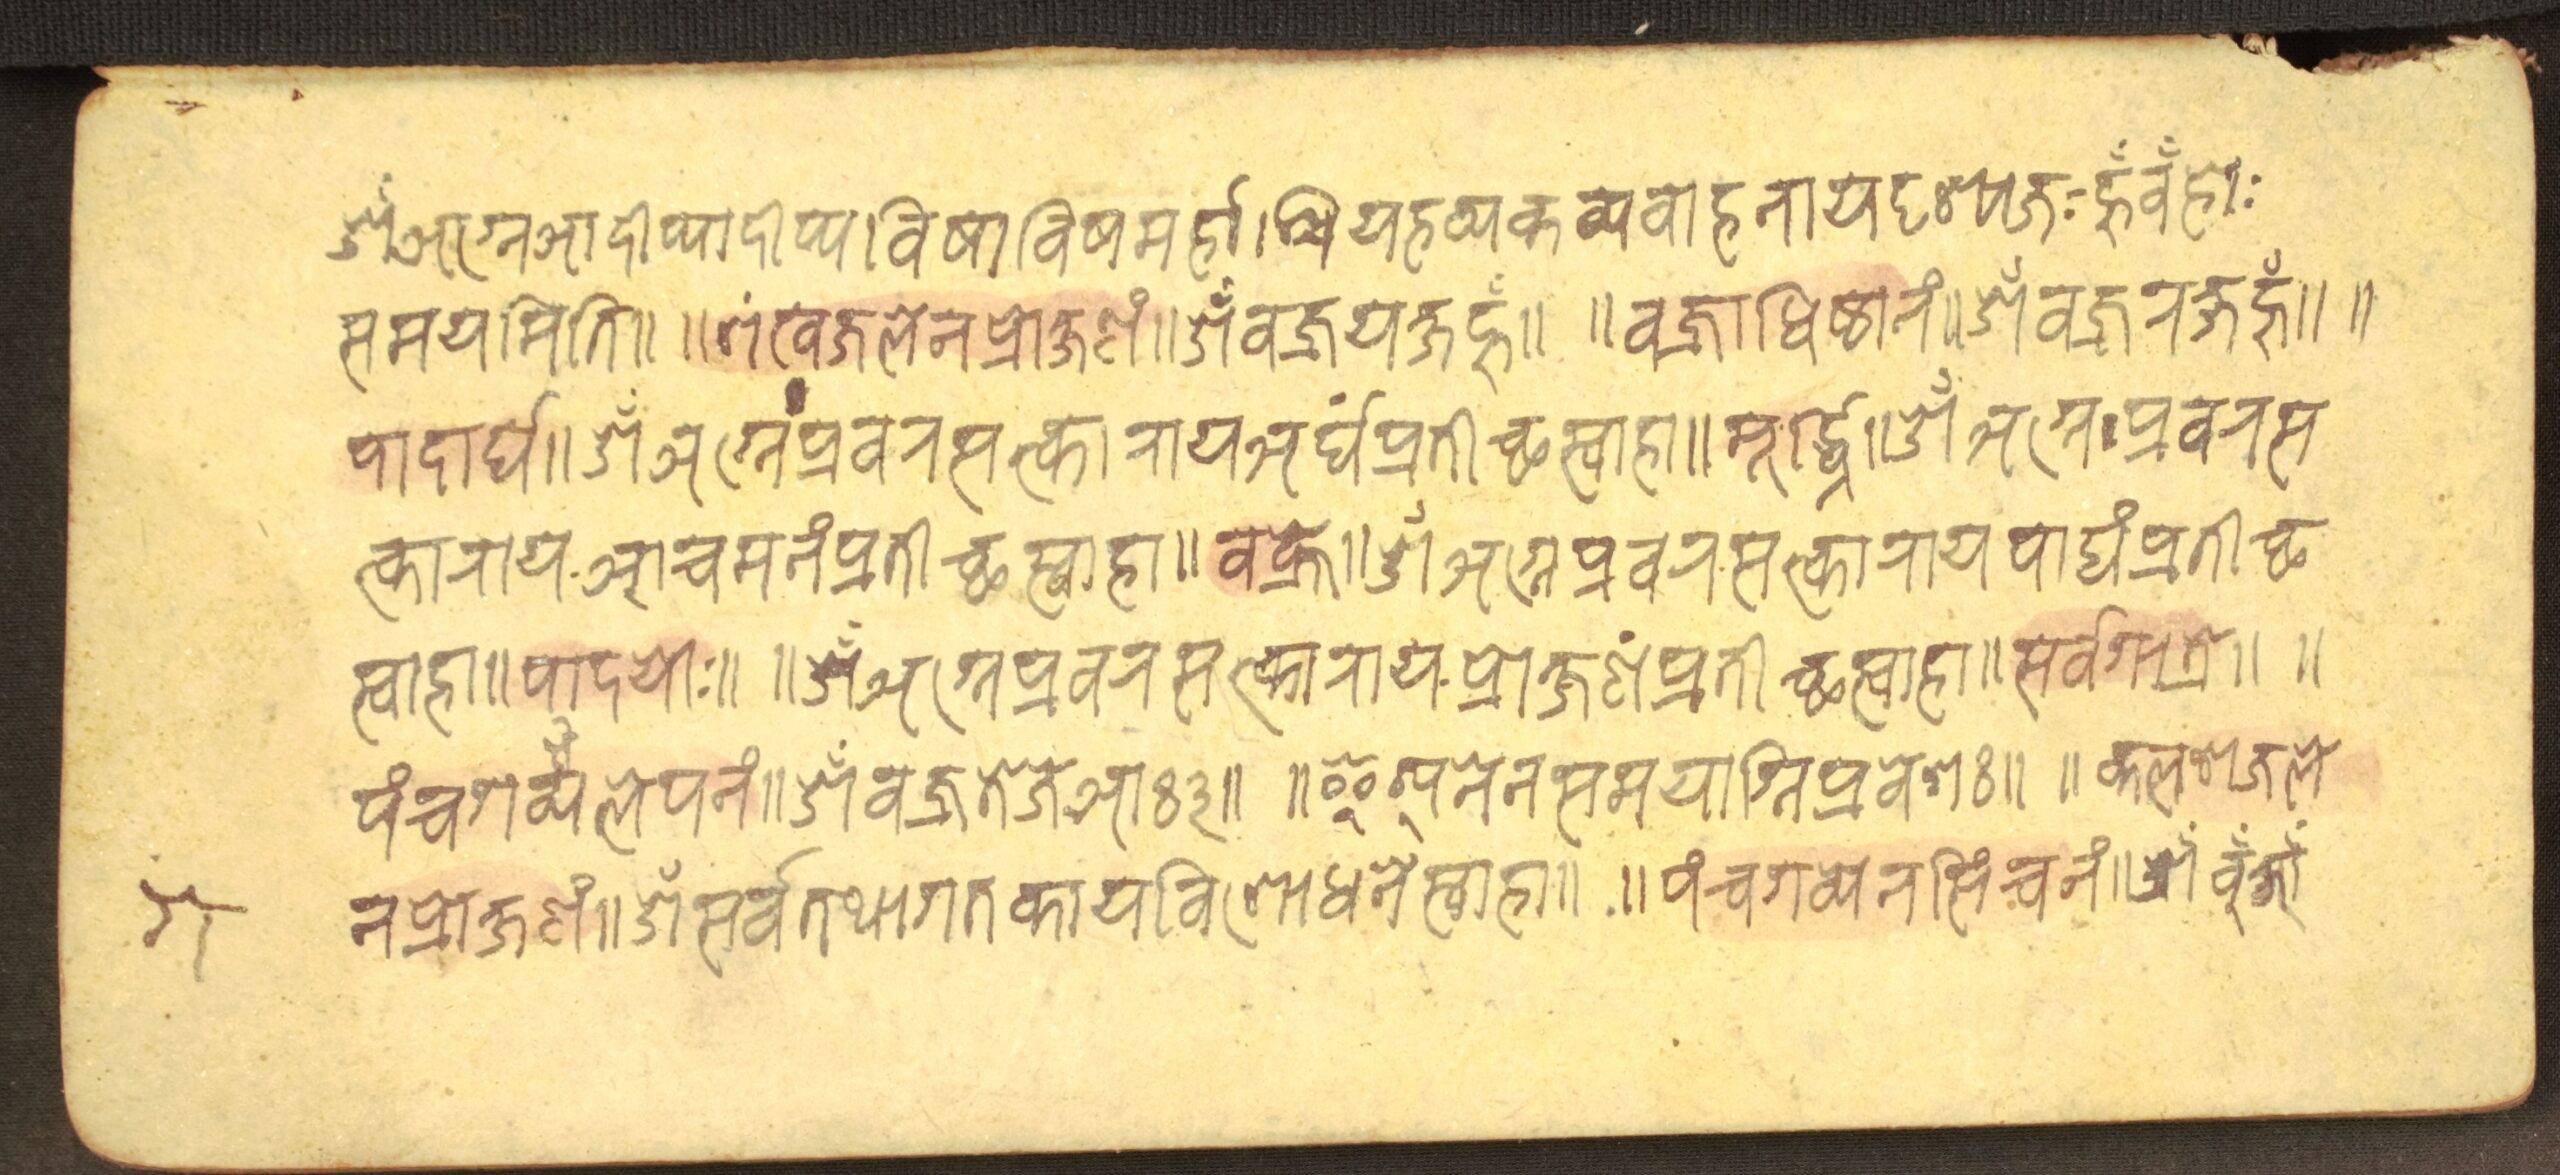 ॐ आग्नआदीप्यादीप्य।विषाविषमर्हा।श्रियहव्यकव्यवाहनाय जः हूँ वँ होः
समयमिति॥ ॥शंखजलेनप्रोक्षणं॥ॐ वज्रयक्षहूँ॥ ॥वज्राधिष्ठानं॥ॐ वज्ररक्षहूँ॥ ॥
पादार्घ॥ॐ अग्नेप्रवरसत्कारायअर्घंप्रतीच्छस्वाहा॥मूर्द्ध्नि॥ॐ अग्नेप्रवरस
त्कारायआचमनंप्रतीच्छस्वाहा॥वक्त्रे॥ॐ अग्नेप्रवरसत्कारायपाद्यंप्रतीच्छ
स्वाहा॥पादयोः॥ ॥ॐ अग्नेप्रवरसत्कारायप्रोक्षणंप्रतीच्छस्वाहा॥सर्वगात्रे॥ ॥
पंचगव्यलेपनं॥ॐ वज्रतेजेआः३॥ ॥ समयाग्निप्रवेशः॥ ॥कलशजले
नप्रोक्षणं॥ॐ सर्वतथागतकायविशोधनेस्वाहा॥ ॥पंचगव्यनसिंचनं॥ॐ